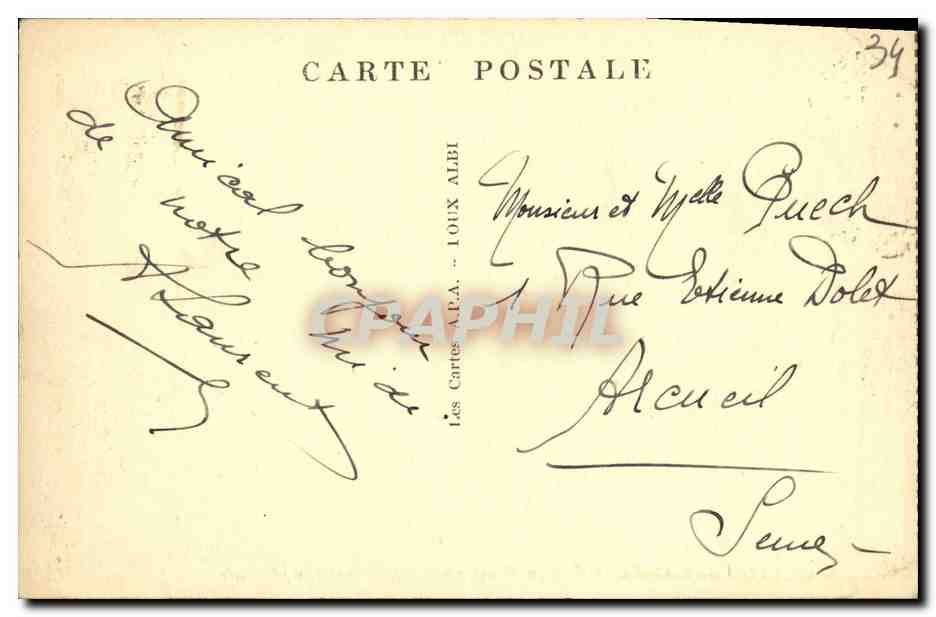 34
CARTE POSTALE
Amical bonjour
de notre Midi
A Laurent
Les Cartes A.P.A. -- POUX ALBI
Monsieur et Melle Puech
1 Rue Etienne Dolet
Arcueil
Seine
CPAPHIL